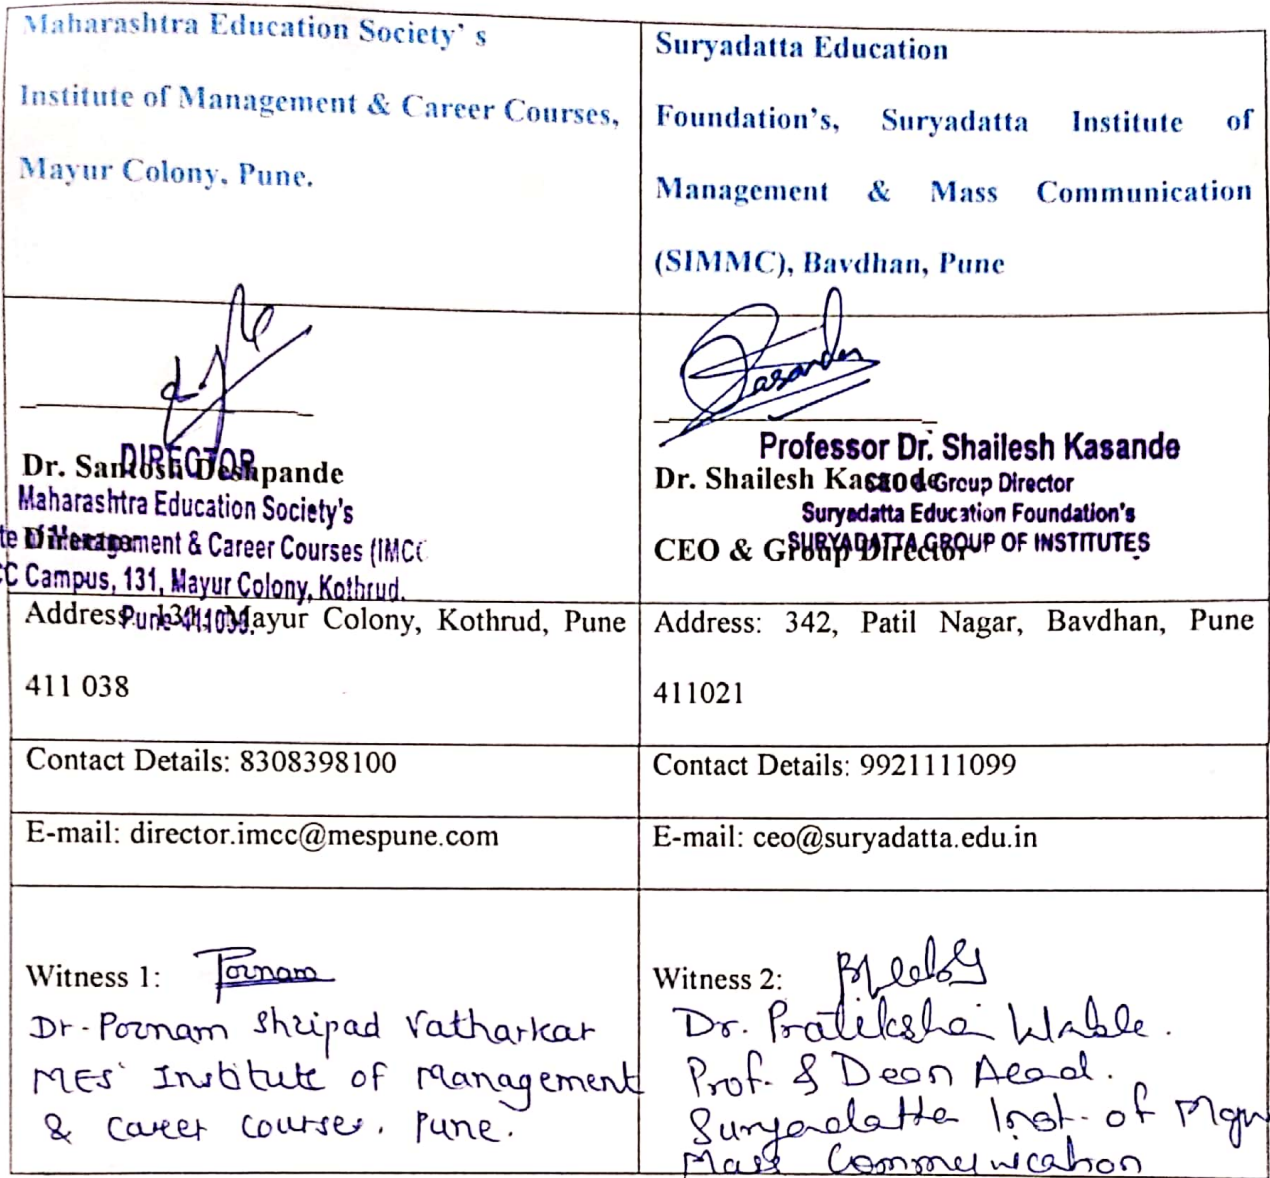 Maharashtra Education Society' s
Institute of Management & Career Courses,
Mayur Colony, Pune.
Suryadatta Education
Foundation's, Suryadatta Institute of
Management & Mass Communication
(SIMMC), Bavdhan, Pune
Dr. Santosh Deshpande
DIRECTOR
Maharashtra Education Society's
Director
te of Management & Career Courses (IMCC
C Campus, 131, Mayur Colony, Kothrud.
Pune-411038.
Kasande
Professor Dr. Shailesh Kasande
Dr. Shailesh Kasande
CEO & Group Director
Suryadatta Education Foundation's
SURYADATTA GROUP OF INSTITUTES
CEO & Group Director
Address: 131, Mayur Colony, Kothrud, Pune
411 038
Address: 342, Patil Nagar, Bavdhan, Pune
411021
Contact Details: 8308398100
Contact Details: 9921111099
E-mail: director.imcc@mespune.com
E-mail: ceo@suryadatta.edu.in
Witness 1: Poznam
Dr. Poznam Shripad Vatharkar
MES' Institute of Management
& Career Courses. Pune.
Witness 2:
Dr. Pratiksha Wable.
Prof. & Dean Acad.
Suryadatta Inst. of Mgm
Mass Communication